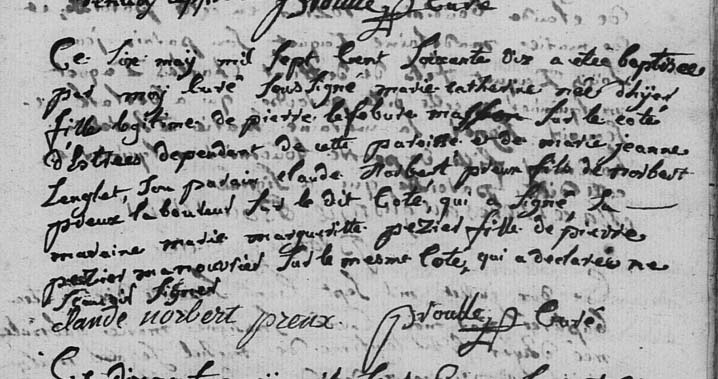 Proulle Curé
Ce Six may mil Sept Cent Soixante dix a etée baptisee
par moy Curé Soussigné marie catherine née d'hijer
fille legitime de pierre lefebure masson Sur le coté
d'Estrées dependant de cette paroisse et de marie jeanne
Lenglet, Son parain claude Norbert preux fils de Norbert
preux laboureur Sur le dit Coté, qui a Signé Sa
maraine marie margueritte pezier fille de pierre
pezier manouvrier Sur le mesme Coté, qui a declarée ne
Scavoir Signer
claude norbert preux Proulle Curé